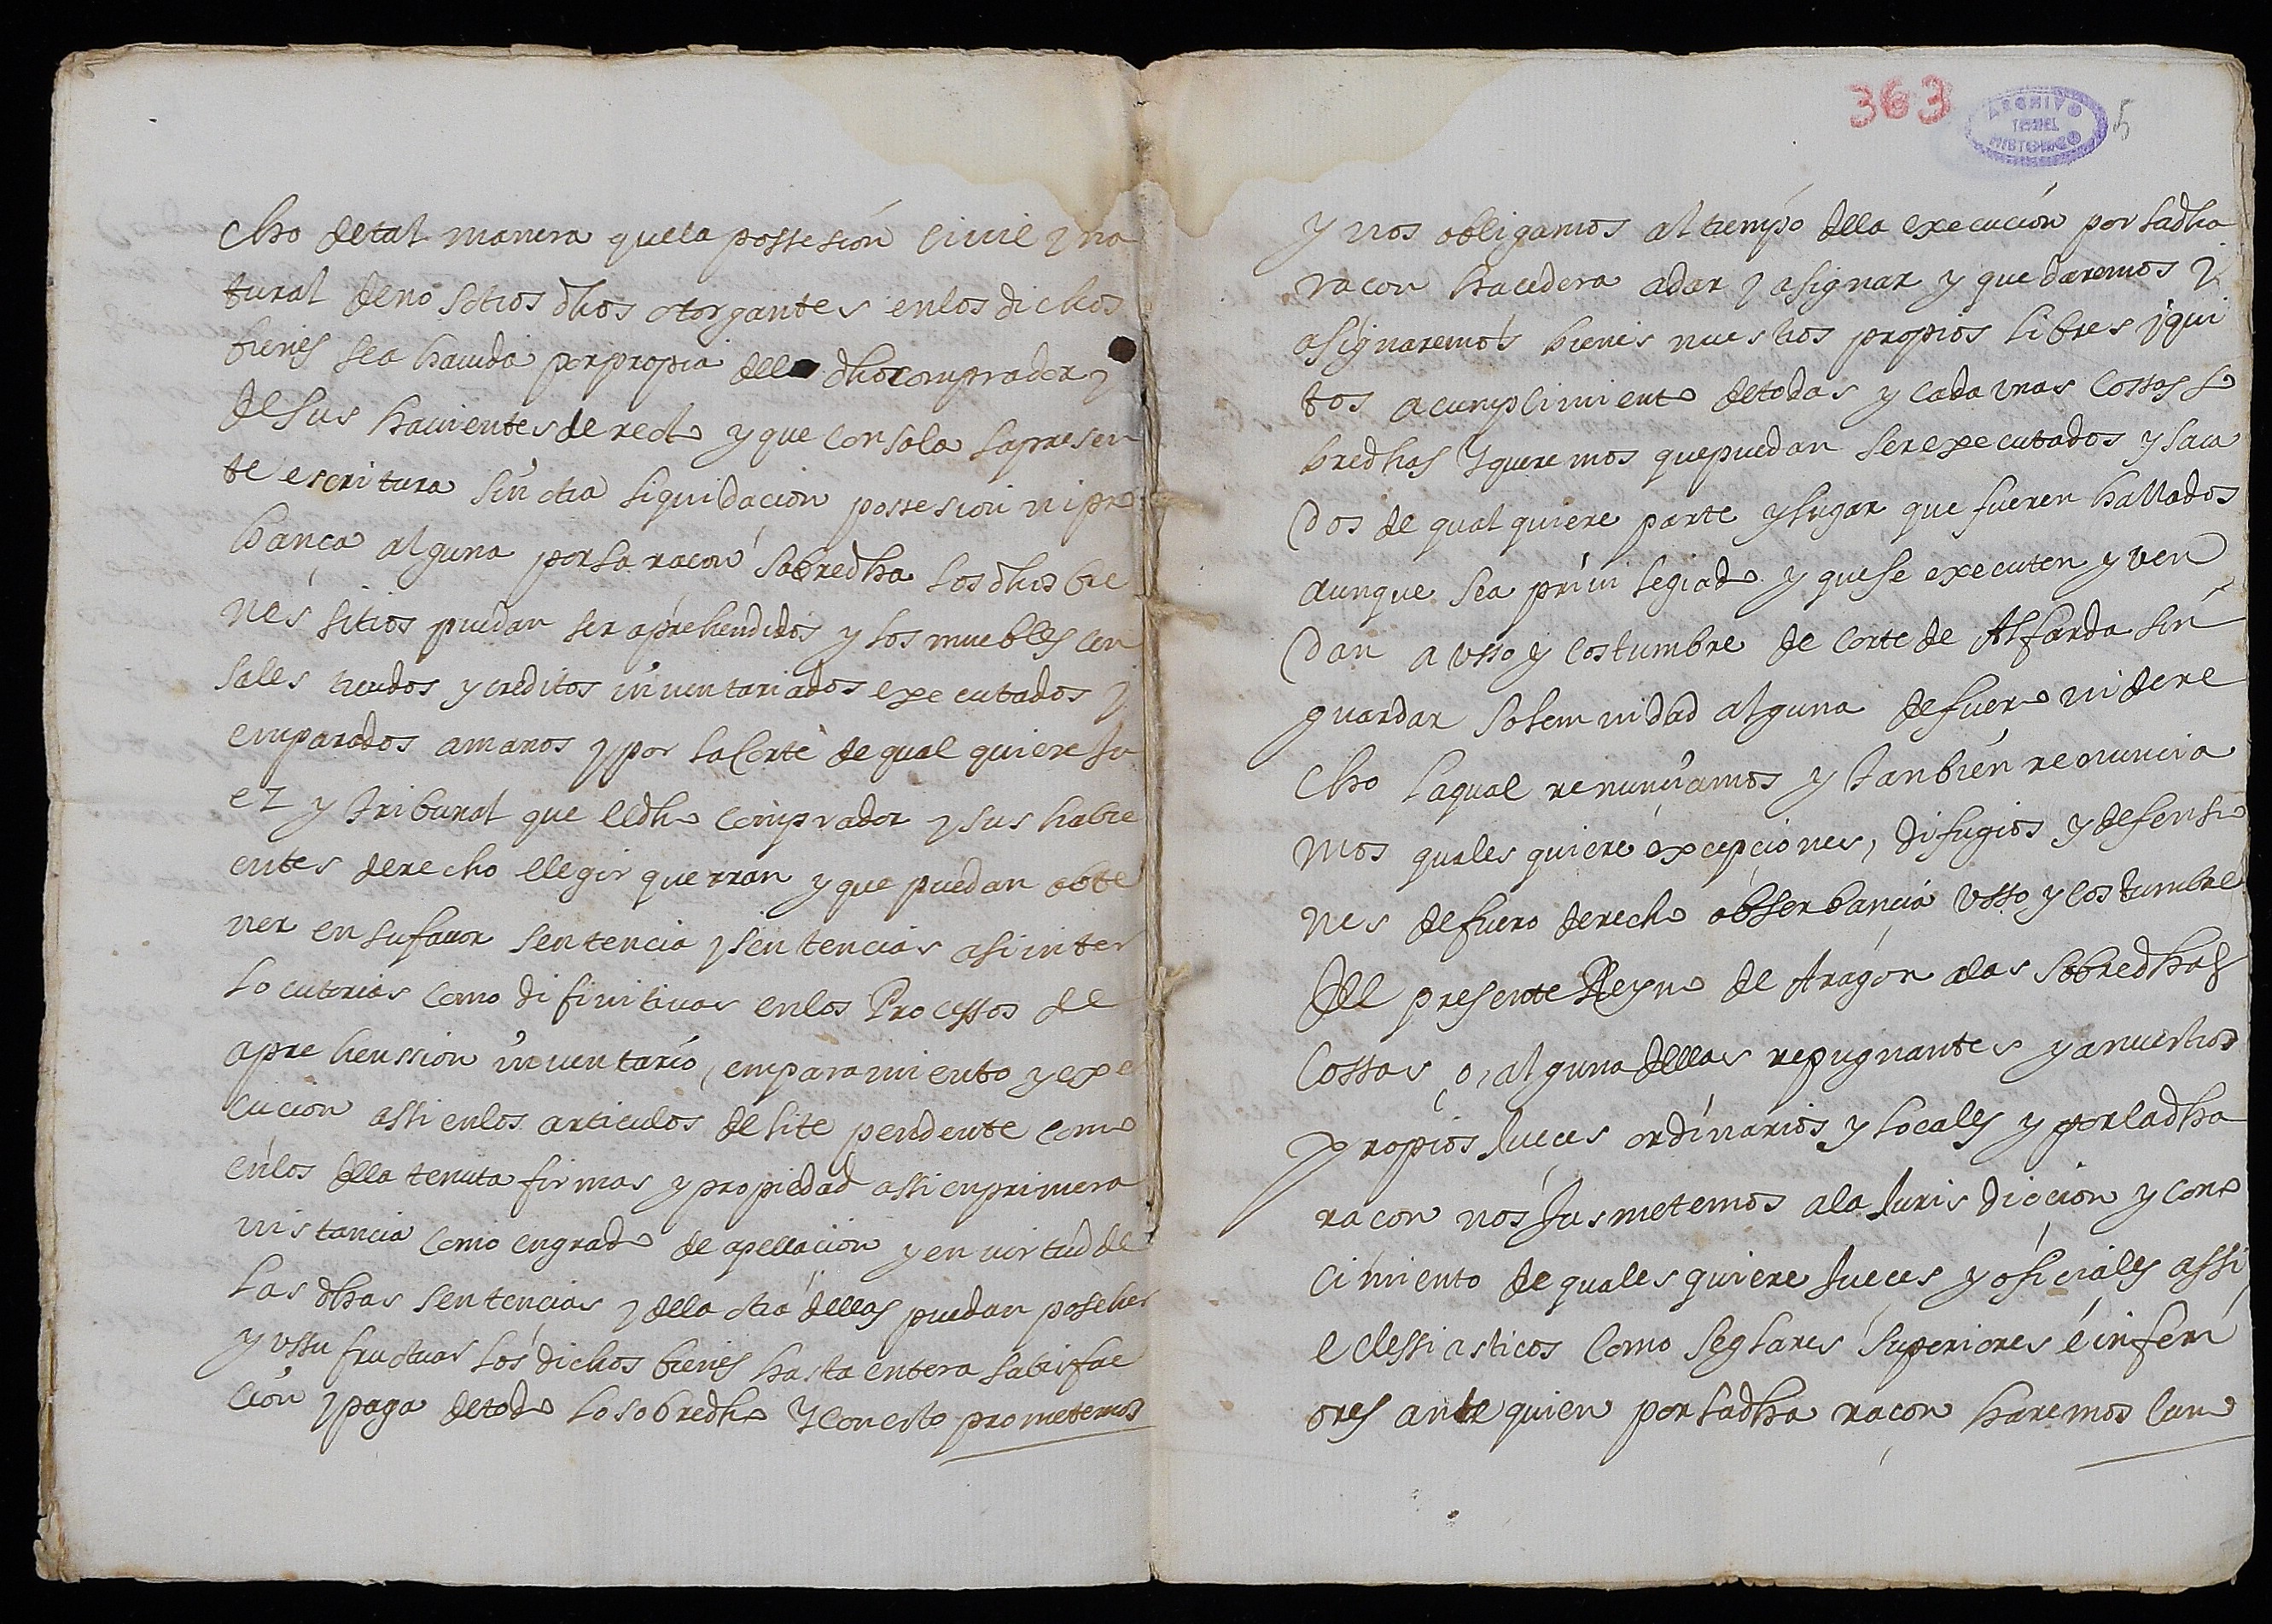 cho de tal manera que la possesión civil y na
tural de nosotros dhos otorgantes en los dichos
bienes sea havida por propia del dho comprador y
de sus havientes derecho y que con sola la presen
te escritura sin otra liquidacion possesion ni pro
bança alguna por la racon sobredha los dhos bie
nes sitios puedan ser aprehendidos y los muebles cen
sales treudos y creditos inventariados executados y
emparados a manos y por la Corte de qual quiere Ju
ez y tribunal que el dho comprador y sus habie
entes derecho elegir querran y que puedan obte
ner en su favor sentencia y sentencias asi inter
locutorias como difinitivas en los Processos de
aprehenssion inventario, emparamiento y exe
cucion assi en los articulos de lite pendente como
en los de la tenuta firmas y propiedad assi en primera
instancia como en grado de apellacion y en virtud de
las dhas sentencias y de la otra dellas puedan posseher
y ussufructuar los dichos bienes hasta entera satisfac
ción y paga de todo lo sobredho Y con esto prometemos
363
ARCHIVO
HISTORICO
TERUEL
5
y nos obligamos al tiempo de la execución por la dha
racon hacedera a dar y asignar y que daremos y
asignaremos bienes nuestros propios libres y qui
tos a cumplimiento de todas y cada unas cossas so
bredhas Y queremos que puedan ser executados y saca
dos de qual quiere parte y lugar que fueren hallados
aunque sea privilegiado y que se executen y ven
dan a usso y costumbre de corte de Alfarda sin
guardar solemnidad alguna de fuero ni dere
cho la qual renunciamos y tanbién renuncia
mos quales quiere excepciones, difugios y defensio
nes de fuero derecho obserbancia usso y costumbre
del presente Reyno de Aragón a las sobredhas
cossas o, alguna dellas repugnantes y a nuestros
propios Jueces ordinarios y locales y por la dha
racon nos Jusmetemos a la Jurisdiccion y cono
cimiento de quales quiere Jueces y oficiales assi
eclessiasticos como seglares superiores é inferi
ores ante quien por la dha racon haremos cum